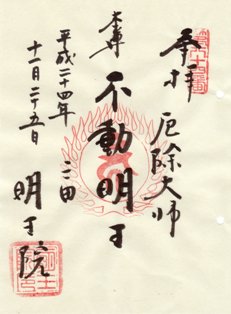 第八十四番
奉拝
厄除大師
本尊
不動明王
三田
明王院
平成二十四年
十一月二十五日